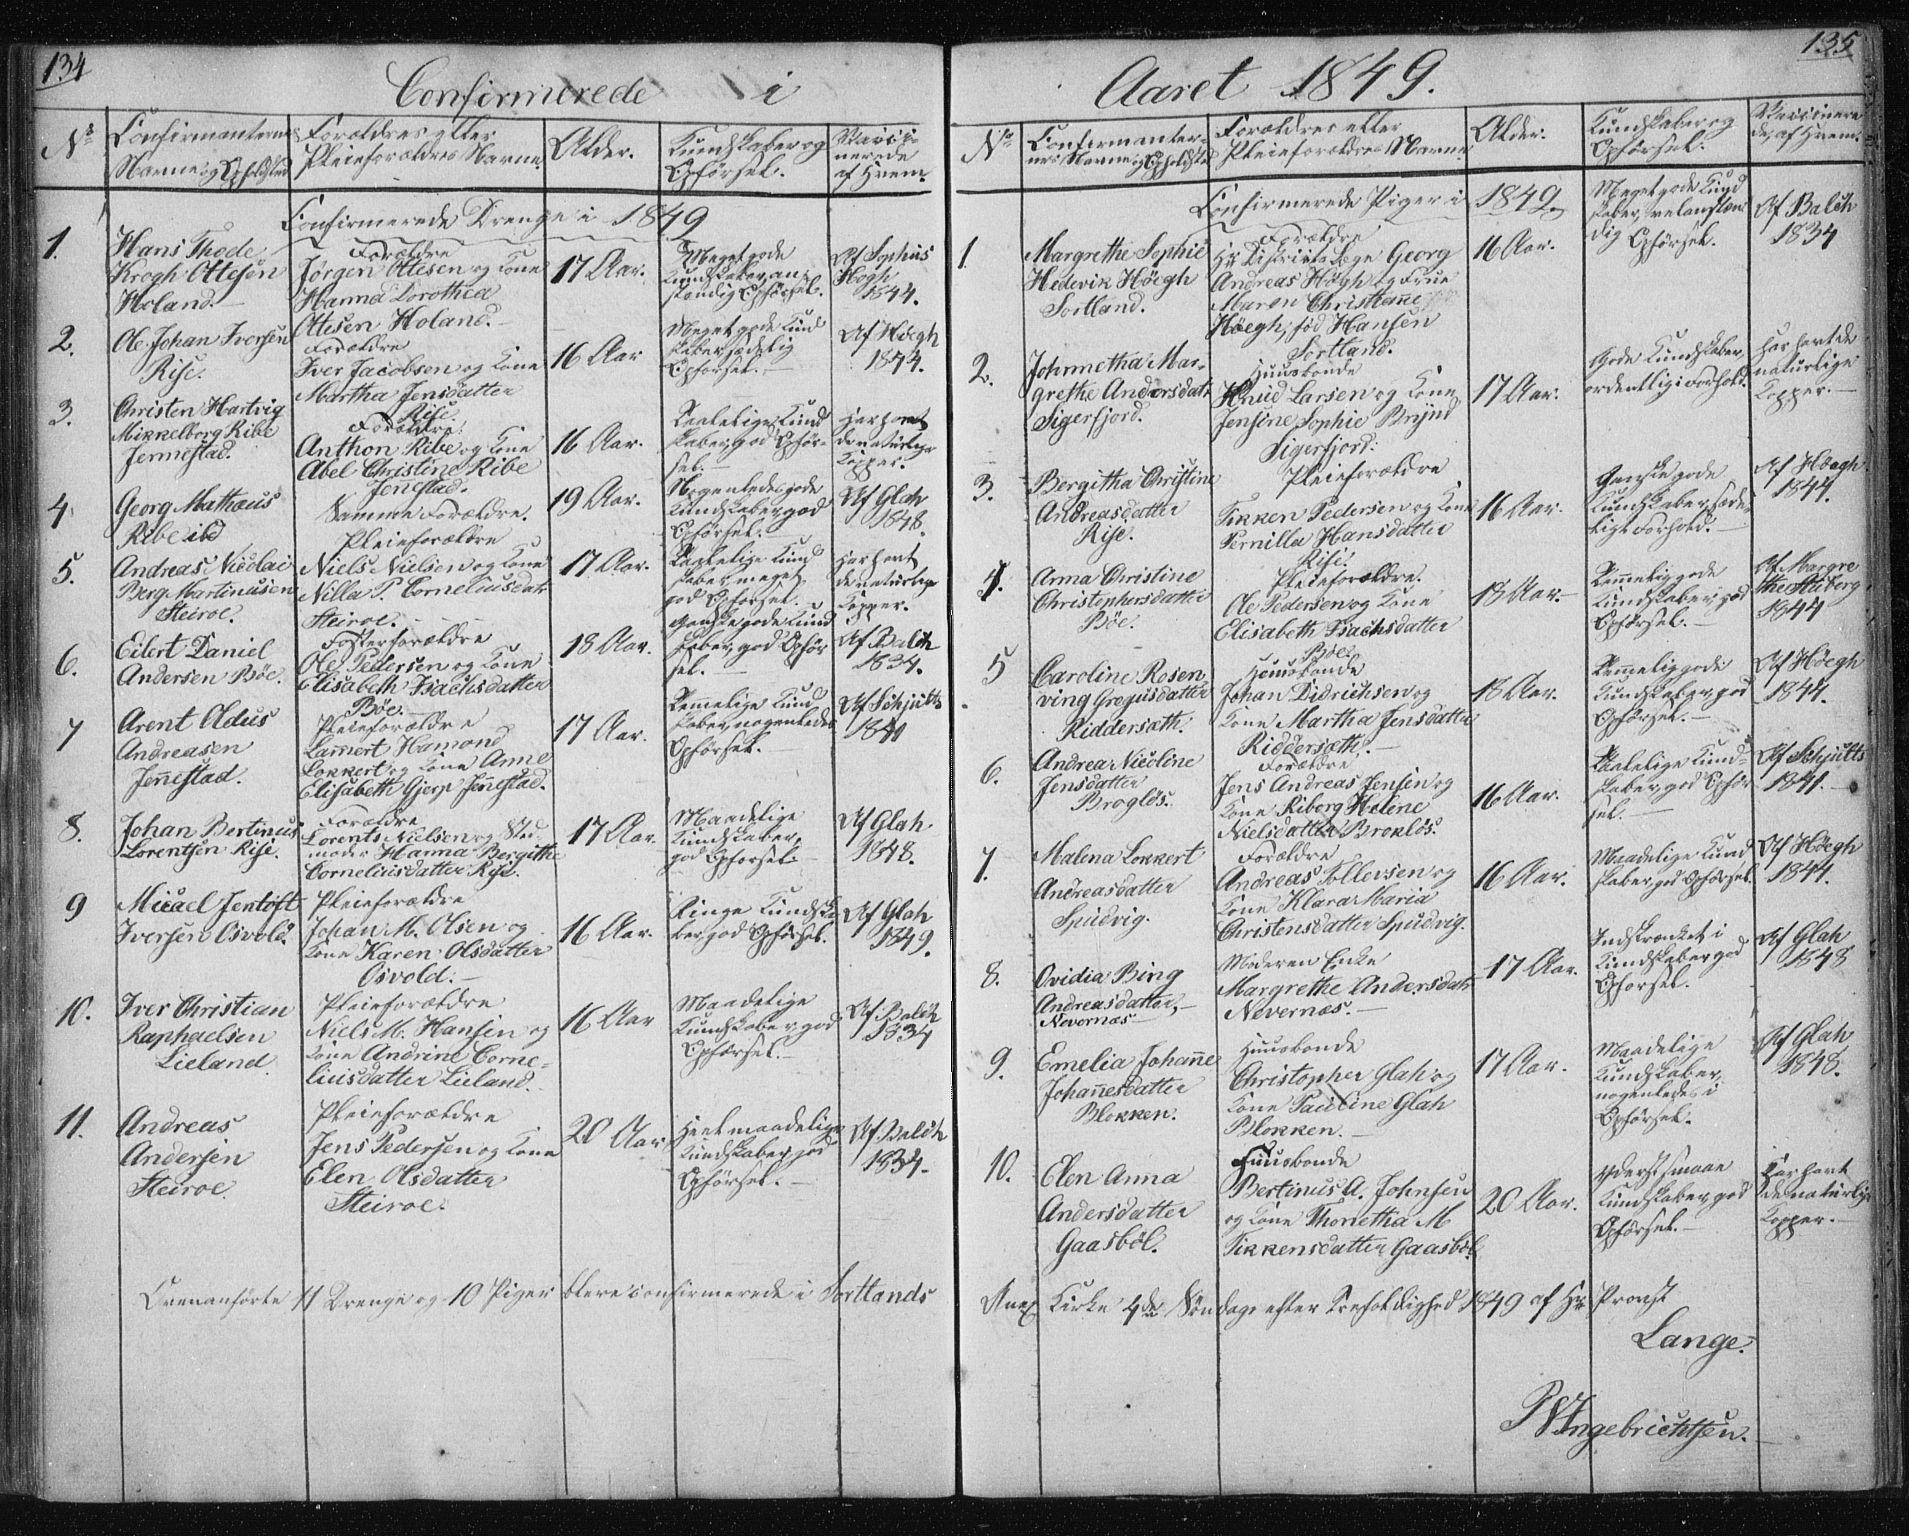 134
Confirmerede i
Nr
Confirmanternes
Navne og Opholdsted
Forældres eller
Pleieforældres Navne.
Alder.
Kundskaber og
Opførsel.
Vacci-
nerede
af Hvem.
Confirmerede Drenge i 1849
1.
Hans Thode
Krogh Ottesen
Holand.
Forældre
Jørgen Ottesen og Kone
Hanna Dorothea
Ottesen Holand.
17 Aar.
Meget gode
Kundskaber, an-
stændig Opførsel.
Af Sophus
Høgh
1844.
2.
Ole Johan Iversen
Rise.
Forældre
Iver Jacobsen og Kone
Martha Jensdatter
Rise.
16 Aar
Meget gode Kund
skaber sædelig
Opførsel.
Af Høegh
1844.
3.
Christen Hartvig
Mikkelborg Ribe
Jennestad.
Forældre:
Anthon Ribe og Kone
Abel Christine Ribe
Jenestad.
16 Aar.
Taalelige Kund
skaber, god Opfør-
sel.
Har havt
de naturlige
Kopper.
4
Georg Mathæus
Ribe ibd
Samme Forældre.
19 Aar.
Nogenledes gode
Kundskaber, god
Opførsel.
Af Glah
1848.
5.
Andreas Nicolai
Berg Martinusen
Steiroe.
Pleieforældre
Niels Nielsen og Kone
Nilla P. Corneliusdatr
Steiroe.
17 Aar.
Taalelige Kund
skaber meget
god Opførsel.
Har havt
de naturlige
Kopper.
6.
Eilert Daniel
Andersen Böe.
Fosterforældre
Ole Pedersen og Kone
Elisabeth Isachsdatter
Böe.
18 Aar.
Ganske gode Kund
skaber, god Opfør
sel.
Af Balch
1834.
7
Arent Oldus
Andreasen
Jennestad.
Pleieforældre
Lammert Hamond
Lokkert og Kone Anne
Elisabeth Gjerp Jennestad.
17 Aar.
Temmelige Kund
skaber, nogenledes
Opførsel.
Af Schjults
1841
8.
Johan Bertinus
Lorentsen Rise.
Forældre
Lorents Nielsen og Sted
moder Hanna Bergitthe
Corneliusdatter Rise.
17 Aar.
Maadelige
Kundskaber,
god Opførsel.
Af Glah
1848.
9
Micael Jentoft
Iversen Osvold.
Pleieforældre
Johan M. Olsen og
Kone Karen Olsdatter
Osvold.
16 Aar.
Ringe Kundska
ber god Opførsel.
Af Glah
1849.
10.
Iver Christian
Raphaelsen
Lieland
Pleieforældre
Niels M. Hansen og
Kone Andrine Corne-
liusdatter Lieland.
16 Aar
Maadelige
Kundskaber, god
Opførsel.
Af Balch
1834
11.
Andreas
Andersen
Steiroe.
Pleieforældre
Jens Pedersen og Kone
Elen Olsdatter
Steiroe.
20 Aar
Heel maadelige
Kundskaber, god
Opførsel.
Af Balch
1834.
135
Aaret 1849.
No
Confirmanter-
nes Navne og Opholdsted
Forældres eller
Pleieforældres Navne
Alder.
Kundskaber og
Opførsel.
Vaccinere
de, af Hvem.
Confirmerede Piger i 1849.
1
Margrethe Sophie
Hedevik Höegh
Sortland.
Forældre
Hr Districtslæge Georg
Andreas Høegh og Frue
Maren Christiane
Høegh, fød Hansen
Sortland.
16 Aar.
Meget gode Kund
skaber, velanstæn
dig Opførsel.
Af Balch
1834
2.
Johnnetha Mar-
grethe Andersdatr
Sigerfjord.
Huusbonde
Knud Larsen og Kone
Jensine Sophie Brynd
Sigerfjord.
17 Aar.
Gode Kundskaber,
ordentligt Forhold.
Har havt de
naturlige
Kopper.
3.
Bergitha Christine
Andreasdatter
Rise.
Pleieforældre
Tikken Pedersen og Kone
Pernilla Hansdatter
Rise.
16 Aar.
Ganske gode
Kundskaber, sæde
ligt Forhold.
Af Höegh
1844.
4.
Anna Christine
Christophersdatter
Böe.
Pleieforældre.
Ole Pedersen og Kone
Elisabeth Isachsdatter
Böe.
18 Aar.
Temmelig gode
Kundskaber, god
Opførsel.
Af Margre
the
1844
5
Caroline Rosen
ving Gregusdatter
Riddersæth.
Huusbonde
Johan Didrichsen og
Kone Martha Jensdatter
Riddersæth.
18 Aar.
Temmelig gode
Kundskaber, god
Opførsel.
Af Høegh
1844.
6.
Andrea Nicoline
Jensdatter
Brogløs.
Forældre
Jens Andreas Jensen og
Kone Riborg Heline
Nielsdatter Brokløs.
16 Aar.
Taalelige Kund-
skaber, god Opfør
sel.
Af Schjults
1841.
7.
Malena Lokkert
Andreasdatter
Spudvig.
Forældre
Andreas Tollevsen og
Kone Klara Maria
Christensdatter Spudvig.
16 Aar.
Maadelige Kund
skaber, god Opførsel.
Af Höegh
1844.
8.
Ovidia Bing
Andreasdatter,
Nevernæs
Moderen Enke
Margrethe Andersdatr
Nevernæs.
17 Aar.
Indskrænket i
Kundskaber, god
Opførsel.
Af Glah
1848
9.
Emelia Johanne
Johannesdatter
Blokken.
Huusbonde
Christopher Glah og
Kone Pauline Glah
Blokken.
17 Aar.
Maadelige
Kundskaber,
nogenledes i
Opførsel.
Af Glah
1848.
10.
Elen Anna
Andersdatter
Gaasböl.
Huusbonde
Bertinus A. Johnsen
og Kone Thorietha M
Tikkensdatter Gaasböl
20 Aar.
Yderst smaae
Kundskaber, god
Opførsel.
Har havt
de naturlige
Kopper.
Ovenanførte 11 Drenge og 10 Piger bleve confirmerede i Sortlands
Anex Kirke 4de Søndag efter Trefoldighed 1849 af Hr Provst
Lange.
P Ingebrichtsen.